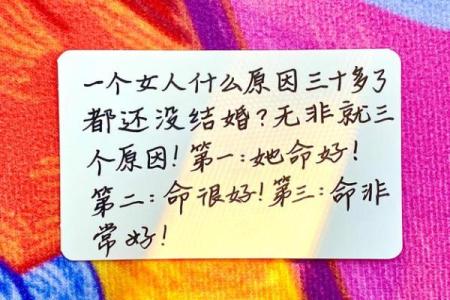 一个女人什么原因三十多了
都还没结婚?无非就三
个原因!第一:她命好!
第二:命很好!第三:命非
常好!